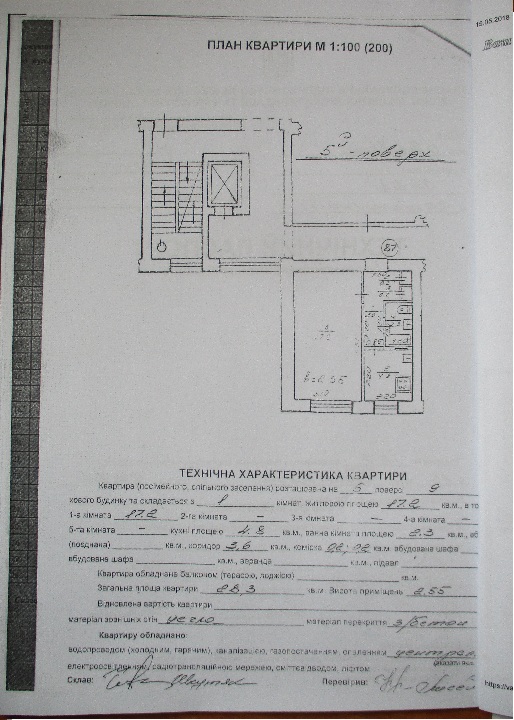 15.05.2018
ПЛАН КВАРТИРИ М 1:100 (200)
5й - поверх
87
h=2.55
ТЕХНІЧНА ХАРАКТЕРИСТИКА КВАРТИРИ
Квартира (посімейного, спільного заселення) розташована на 5 поверсі 9
хового будинку та складається з 1 кімнат житловою площею 17.2 кв.м, в то
1-а кімната 17.2 2-га кімната – 3-я кімната – 4-а кімната –
5-та кімната – кухні площею 4.8 кв.м, ванна кімната площею 2.3 кв.м, вб
(поєднана) кв.м, коридор 3.6 кв.м, комірка кв.м вбудована шафа
вбудована шафа кв.м, веранда кв.м, підвал
Квартира обладнана балконом (терасою, лоджією) кв.м.
Загальна площа квартири 28,3 кв.м. Висота приміщень 2.55
Відновлена вартість квартири
матеріал зовнішніх стін цегла матеріал перекриття з/бетон
Квартиру обладнано:
водопроводом (холодним, гарячим), каналізацією, газопостачанням, опаленням централ
електроосвітленням, радіотрансляційною мережею, сміттєпроводом, ліфтом
Склав: Перевірив:
https://va